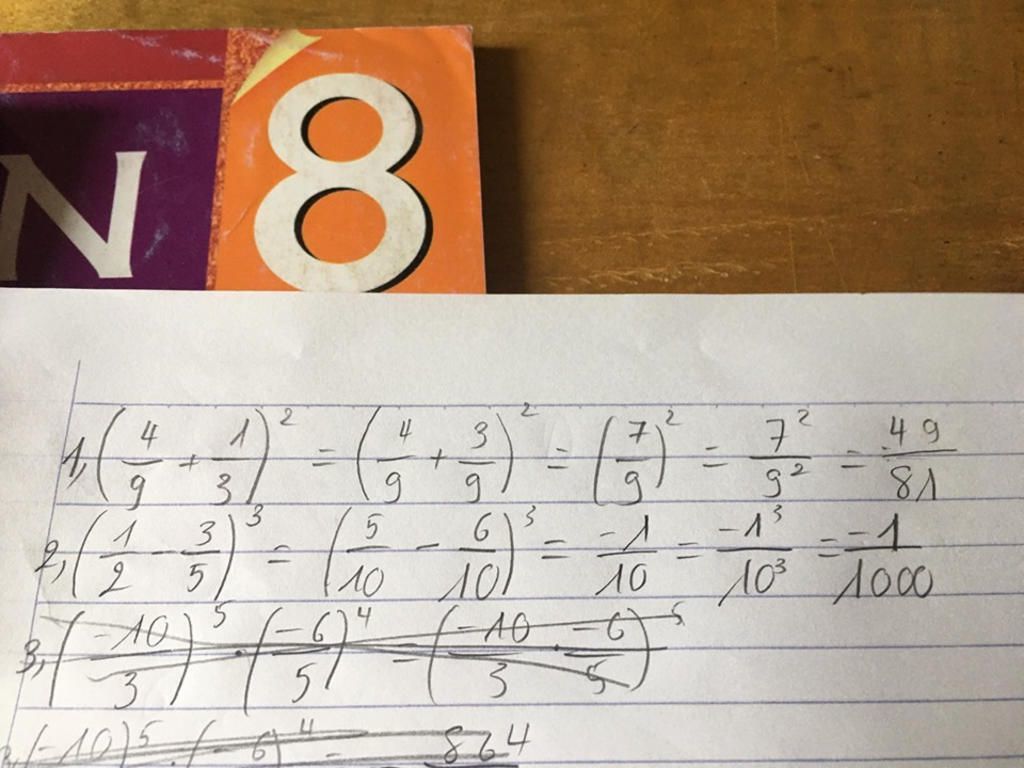 N 8
1, (4/9 + 1/3)² = (4/9 + 3/9)² = (7/9)² = 7²/9² = 49/81
2, (1/2 - 3/5)³ = (5/10 - 6/10)³ = -1/10 = -1³/10³ = -1/1000
3, (-10/3)⁵ · (-6/5)⁴ = (-10/3 · -6/5)⁵
(-10)⁵ · (-6)⁴ = 864